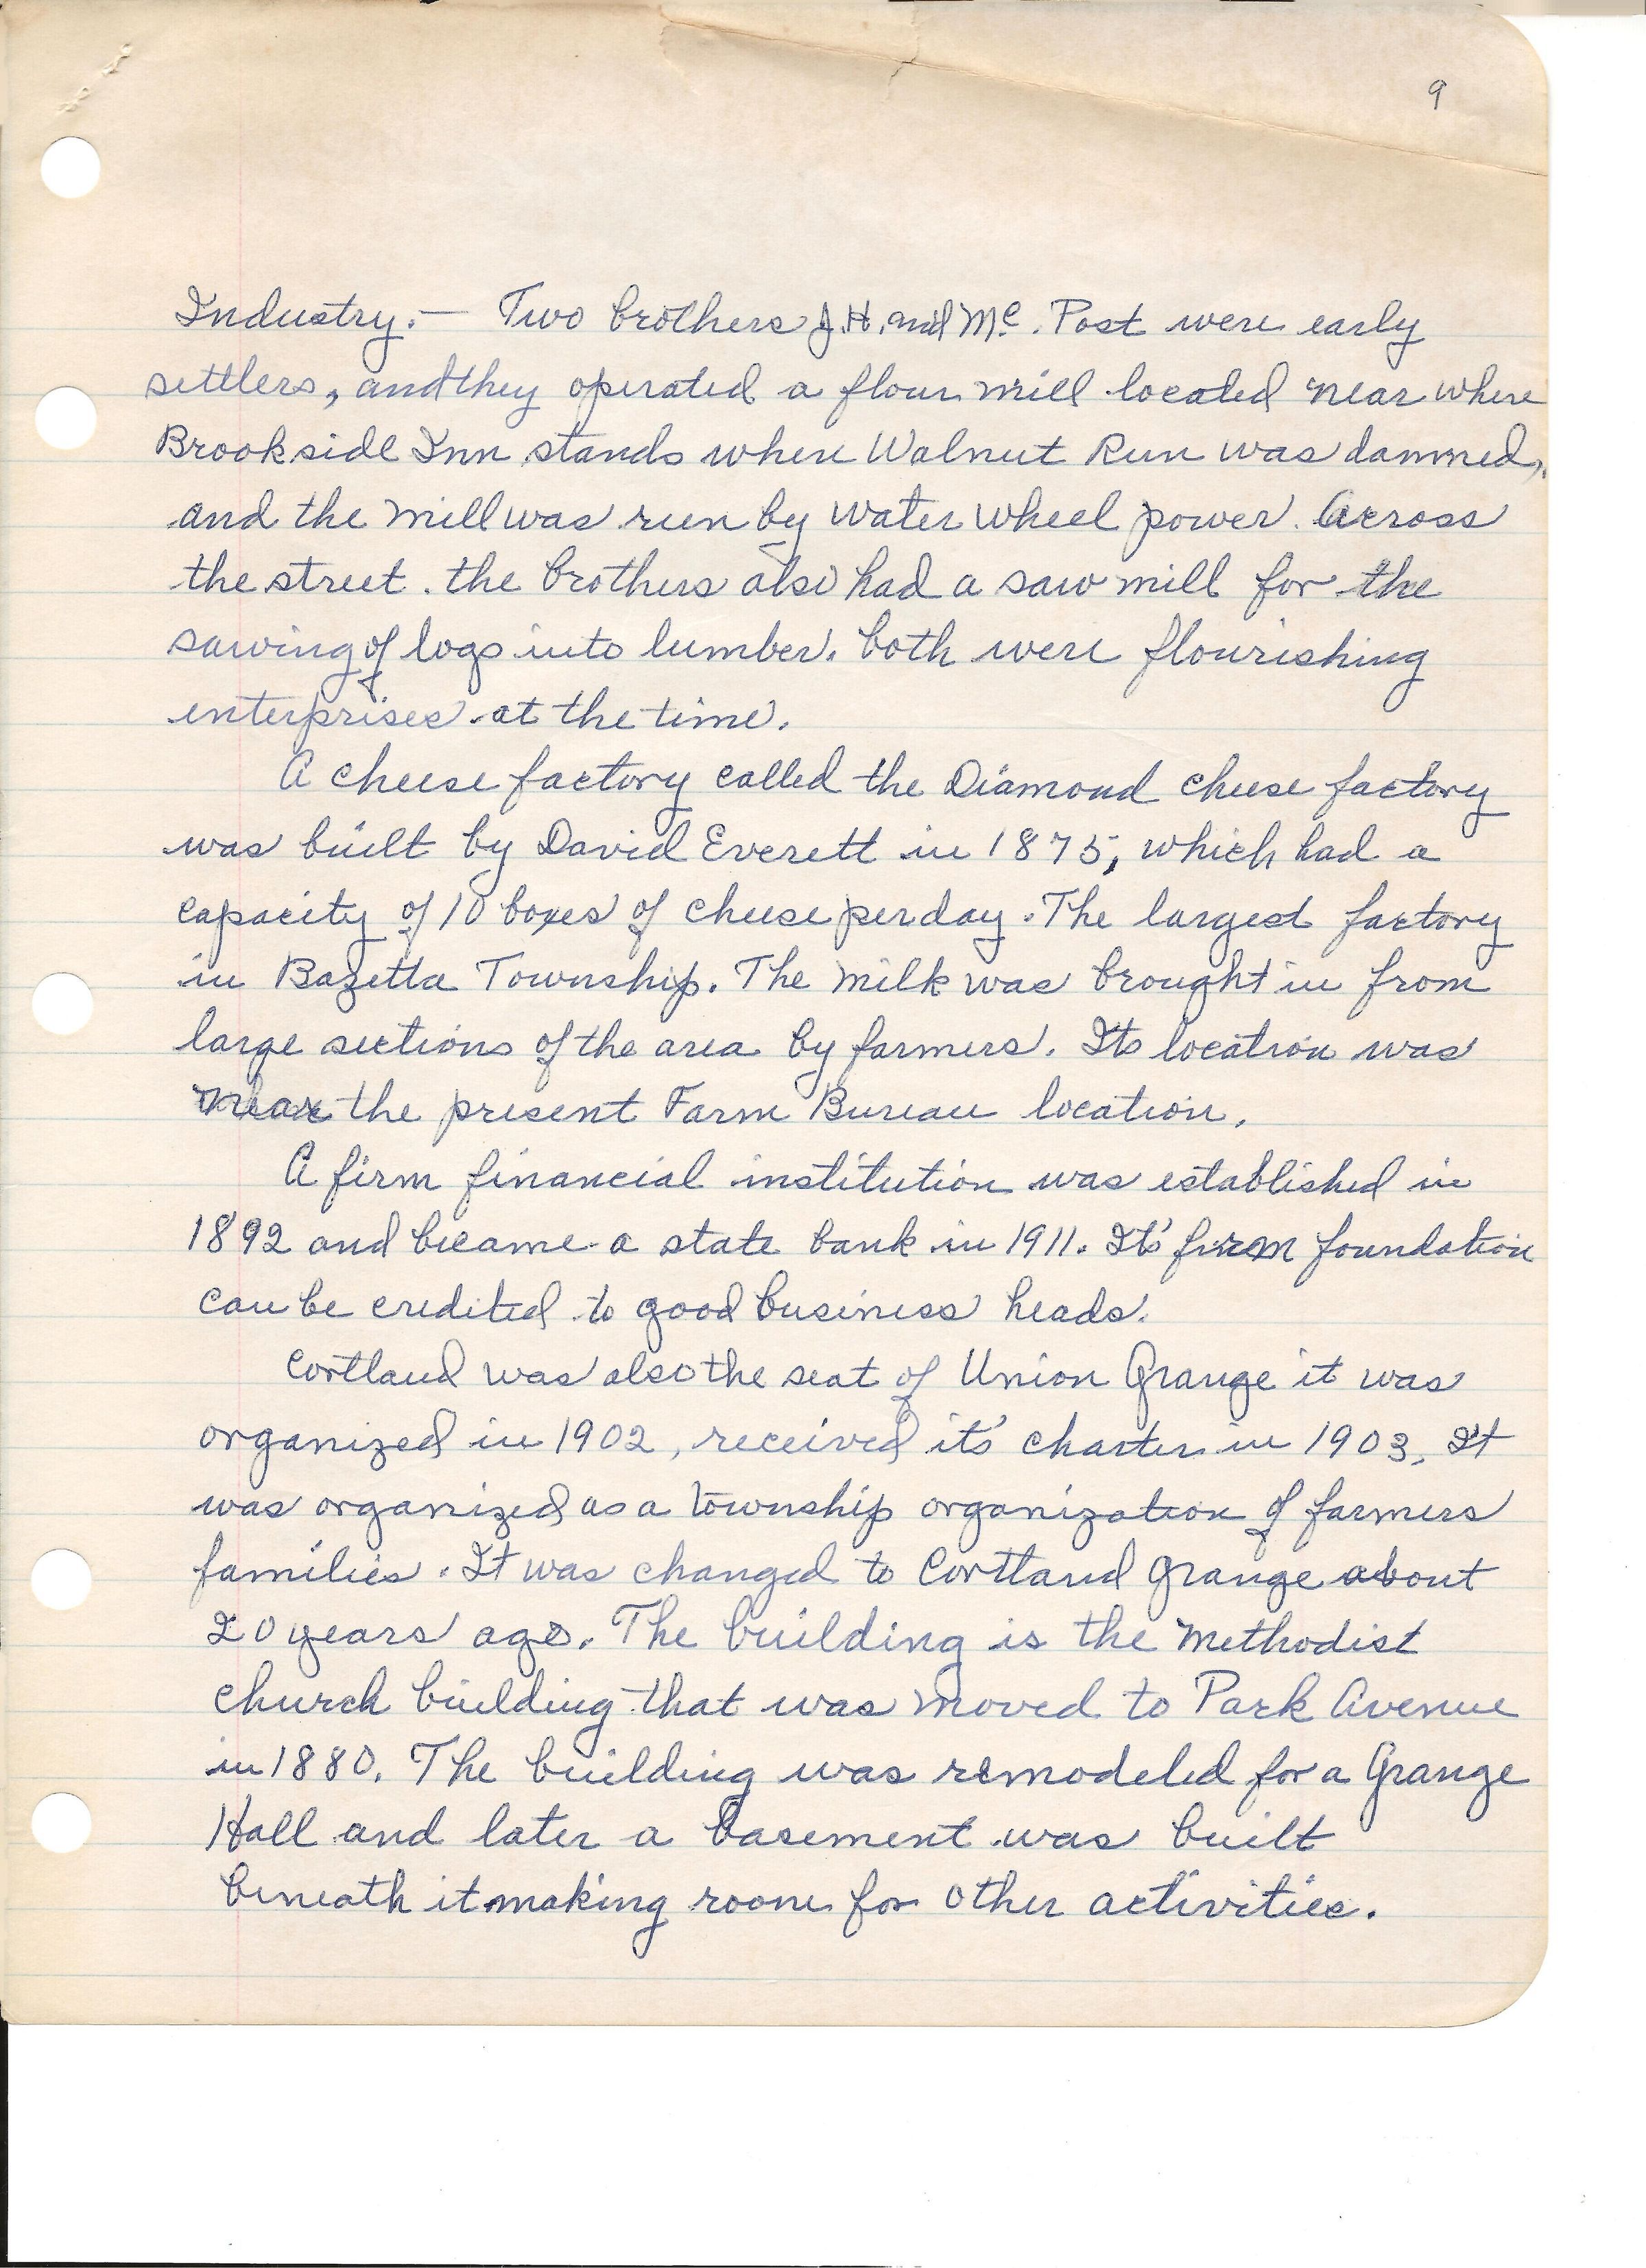 9
Industry.— Two brothers J.H. and Mc. Post were early
settlers, and they operated a flour mill located near where
Brookside Inn stands when Walnut Run was dammed,
and the mill was run by water wheel power. Across
the street. the brothers also had a saw mill for the
sawing of logs into lumber. both were flourishing
enterprises at the time.
A cheese factory called the Diamond cheese factory
was built by David Everett in 1875, which had a
capacity of 10 boxes of cheese per day. The largest factory
in Bazetta Township. The milk was brought in from
large sections of the area by farmers. Its location was
near the present Farm Bureau location.
A firm financial institution was established in
1892 and became a state bank in 1911. It's firm foundation
can be credited to good business heads.
Cortland was also the seat of Union Grange it was
organized in 1902, received it's charter in 1903. It
was organized as a township organization of farmers
families. It was changed to Cortland Grange about
20 years ago. The building is the Methodist
church building that was moved to Park Avenue
in 1880. The building was remodeled for a Grange
Hall and later a basement was built
beneath it making room for other activities.